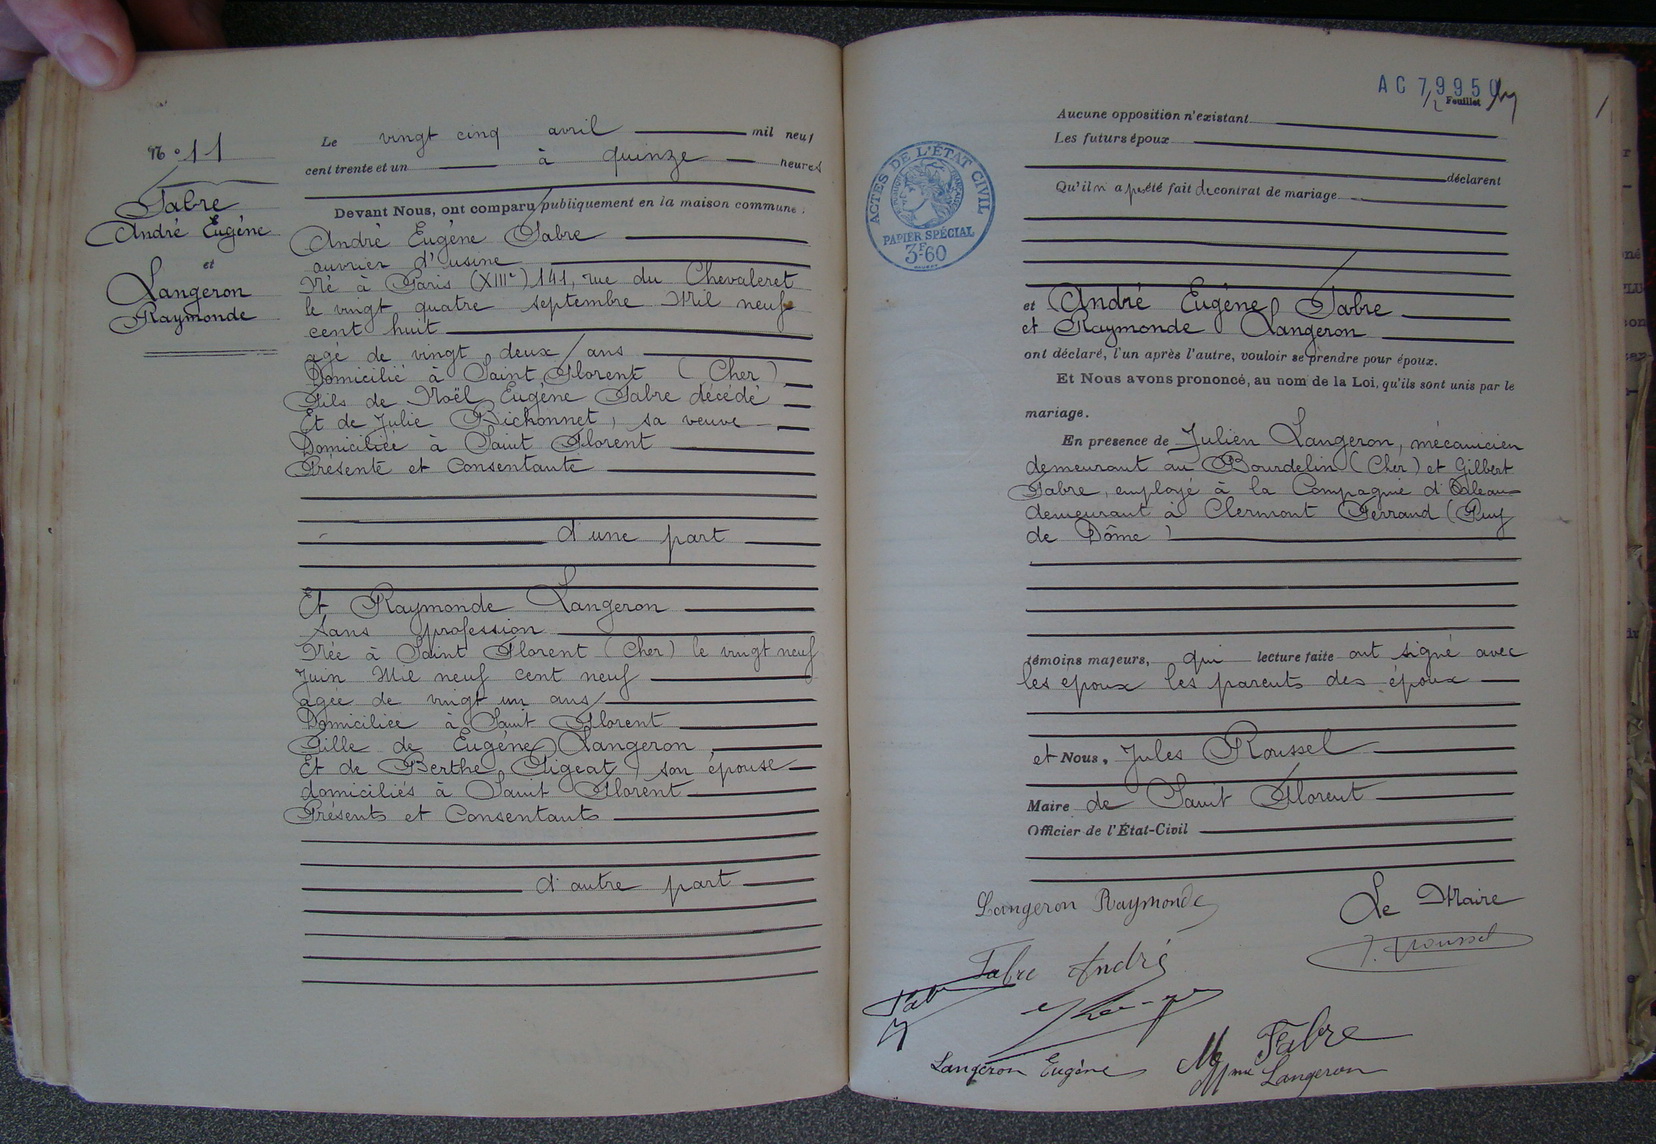 N° 11
Fabre
André Eugène
et
Langeron
Raymonde
Le vingt cinq avril mil neuf
cent trente et un à quinze heures
Devant Nous, ont comparu publiquement en la maison commune :
André Eugène Fabre
ouvrier d'usine
Né à Paris (XIIIe) 141, rue du Chevaleret
le vingt quatre septembre Mil neuf
cent huit
agé de vingt deux ans
Domicilié à Saint Florent (Cher)
Fils de Noël Eugène Fabre décédé
Et de Julie Bichonnet, sa veuve
Domiciliée à Saint Florent
Présente et Consentante
d'une part
Et Raymonde Langeron
Sans profession
Née à Saint Florent (Cher) le vingt neuf
Juin Mil neuf cent neuf
agée de vingt un ans
Domiciliée à Saint Florent
Fille de Eugène Langeron,
Et de Berthe Cligeat, son épouse
domiciliés à Saint Florent
Présents et Consentants
d'autre part
AC 79950
Feuillet
ACTES DE L'ÉTAT CIVIL
PAPIER SPÉCIAL
3F.60
Aucune opposition n'existant
Les futurs époux
déclarent
Qu'il n'a pas été fait de contrat de mariage
et André Eugène Fabre
et Raymonde Langeron
ont déclaré, l'un après l'autre, vouloir se prendre pour époux.
Et Nous avons prononcé, au nom de la Loi, qu'ils sont unis par le
mariage.
En présence de Julien Langeron, mécanicien
demeurant au Bourdelin (Cher) et Gilbert
Fabre, employé à la Compagnie d'Orléans
demeurant à Clermont Ferrand (Puy
de Dôme)
témoins majeurs, qui lecture faite ont signé avec
les époux les parents des époux
et Nous, Jules Roussel
Maire de Saint Florent
Officier de l'État-Civil
Langeron Raymonde
Le Maire
J. Roussel
Fabre André
Fabre
Langeron Eugène
Me Fabre
Mme Langeron